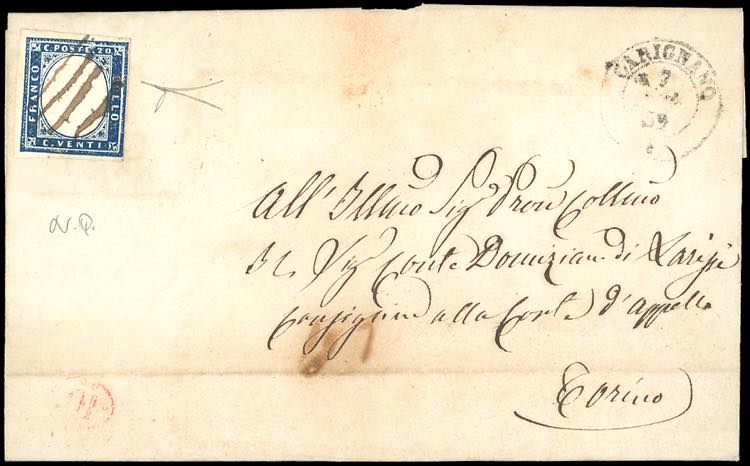 C. POSTE. 20
FRANCO
BOLLO
C. VENTI
CARIGNANO
7
59
All' Illmo Sig Pron Collmo
Il Sig Conte Domiziano di
Consigliere alla Corte d'appello
Torino